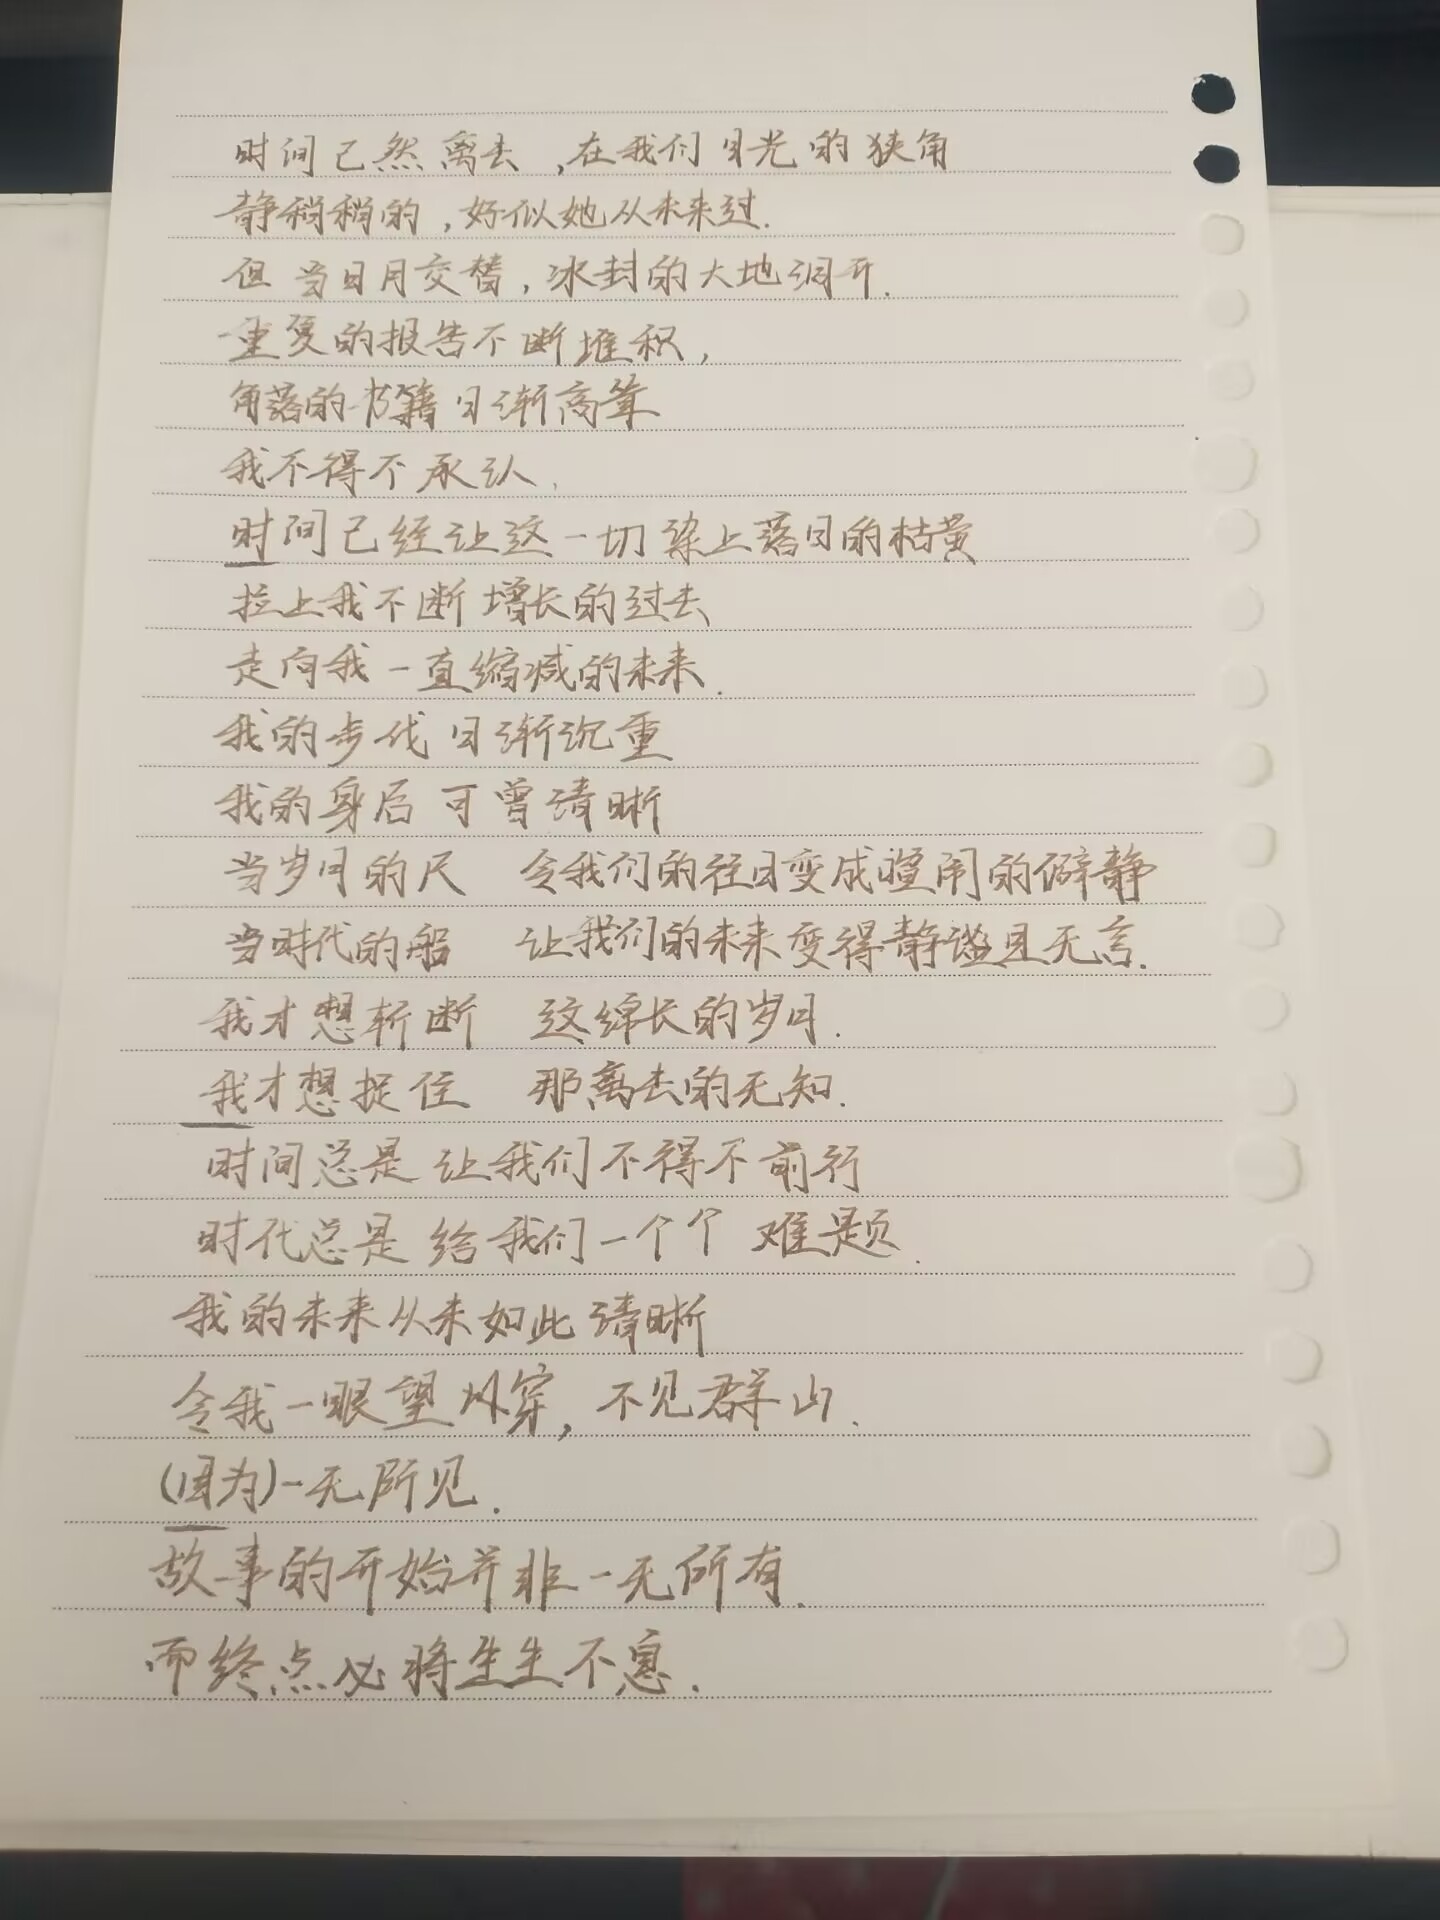 时间已然离去,在我们目光的狭角
静稍稍的,好似她从未来过.
但当日月交替,冰封的大地洞开.
重复的报告不断堆积,
角落的书籍日渐高耸
我不得不承认,
时间已经让这一切染上落日的枯黄
拉上我不断增长的过去
走向我一直缩减的未来.
我的步伐 日渐沉重
我的身后 可曾清晰
当岁月的尺 令我们的往日变成喧闹的僻静
当时代的船 让我们的未来变得静谧且无言.
我才想斩断 这绵长的岁月.
我才想捉住 那离去的无知.
时间总是 让我们不得不前行
时代总是 给我们一个个 难题.
我的未来从未如此清晰
令我一眼望以穿,不见群山.
(因为)一无所见.
故事的开始并非一无所有.
而终点必将生生不息.